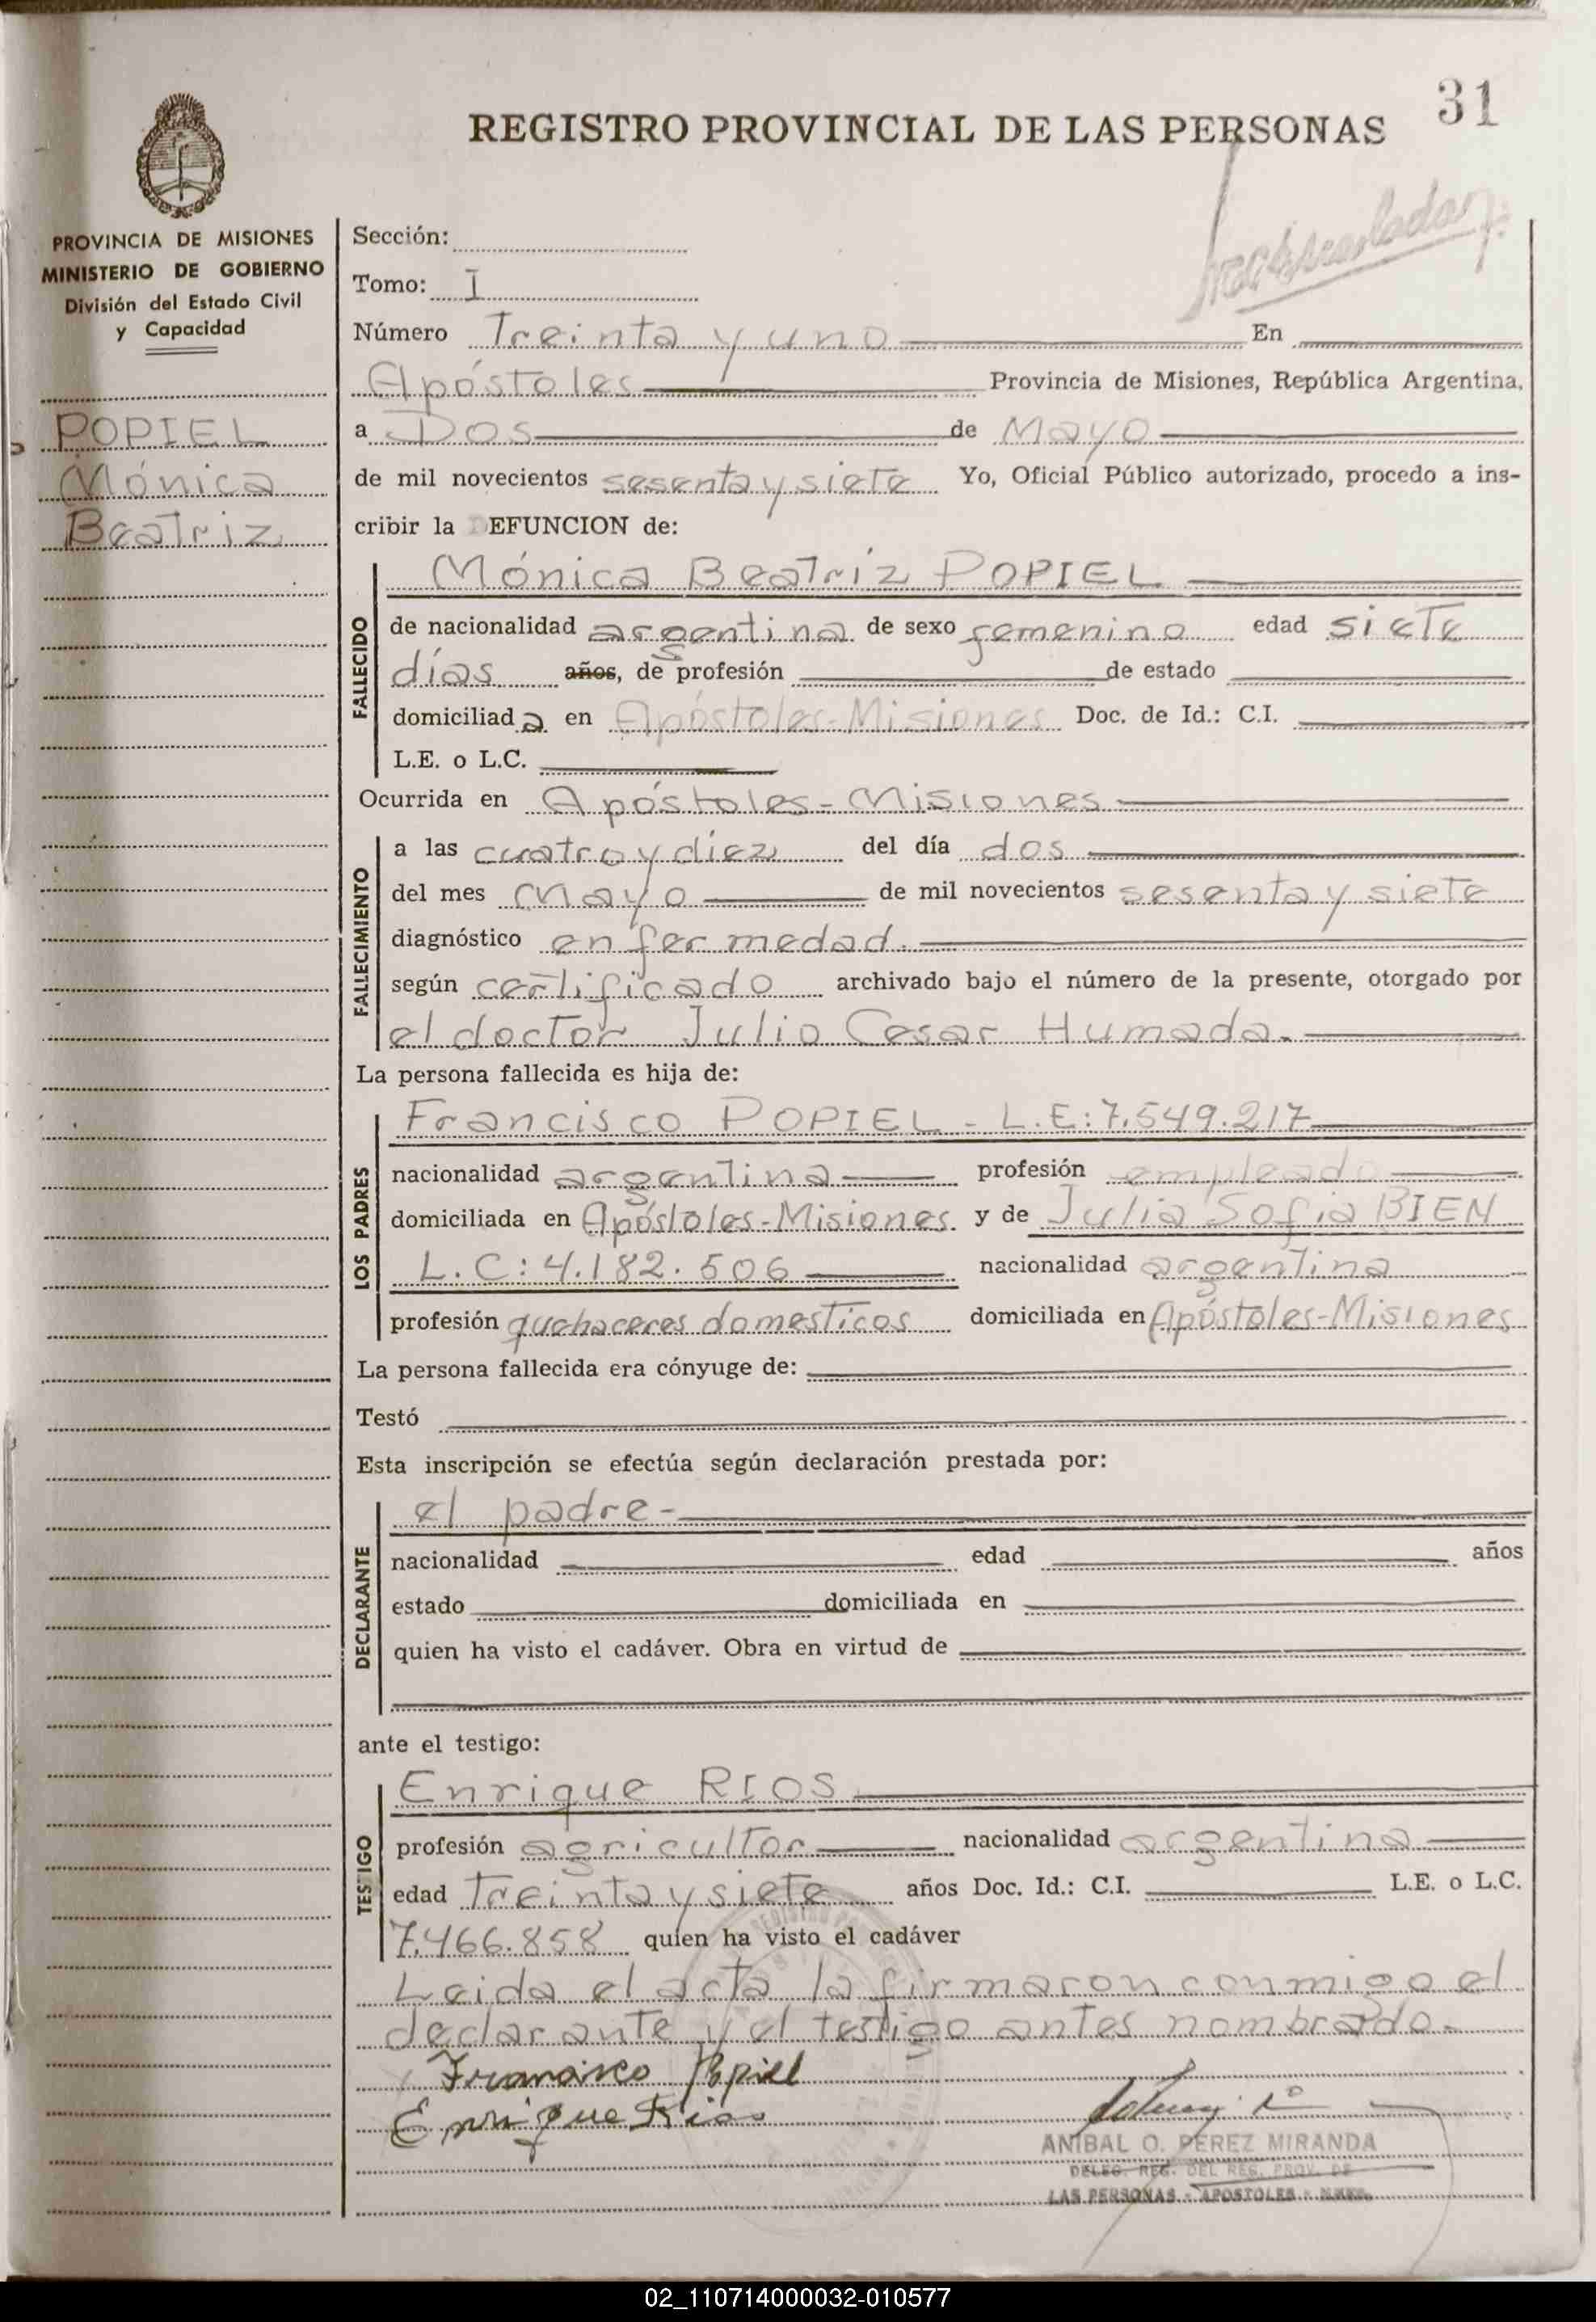 31
REGISTRO PROVINCIAL DE LAS PERSONAS
PROVINCIA DE MISIONES
MINISTERIO DE GOBIERNO
División del Estado Civil
y Capacidad
POPIEL
Mónica
Beatriz
Sección:
Tomo: I
Número Treinta y uno En
Apóstoles Provincia de Misiones, República Argentina,
a Dos de Mayo
de mil novecientos sesenta y siete Yo, Oficial Público autorizado, procedo a ins-
cribir la DEFUNCION de:
FALLECIDO
Mónica Beatriz POPIEL
de nacionalidad argentina de sexo femenino edad siete
días años, de profesión de estado
domiciliada en Apóstoles-Misiones Doc. de Id.: C.I.
L.E. o L.C.
Ocurrida en Apóstoles-Misiones
FALLECIMIENTO
a las cuatro y diez del día dos
del mes Mayo de mil novecientos sesenta y siete
diagnóstico enfermedad.
según certificado archivado bajo el número de la presente, otorgado por
el doctor Julio Cesar Humada.
La persona fallecida es hija de:
LOS PADRES
Francisco POPIEL - L.E: 7.549.217
nacionalidad argentina profesión empleado
domiciliada en Apóstoles-Misiones y de Julia Sofia BIEN
L.C: 4.182.506 nacionalidad argentina
profesión quehaceres domesticos domiciliada en Apóstoles-Misiones
La persona fallecida era cónyuge de:
Testó
Esta inscripción se efectúa según declaración prestada por:
DECLARANTE
el padre-
nacionalidad edad años
estado domiciliada en
quien ha visto el cadáver. Obra en virtud de
ante el testigo:
TESTIGO
Enrique RIOS
profesión agricultor nacionalidad argentina
edad treinta y siete años Doc. Id.: C.I. L.E. o L.C.
7.466.858 quien ha visto el cadáver
Leida el acta la firmaron conmigo el
declarante y el testigo antes nombrado.
Francisco Popiel
Enrique Rios
ANIBAL O. PEREZ MIRANDA
DELEG. REG. DEL REG. PROV. DE
LAS PERSONAS - APOSTOLES - MNES.
02_110714000032-010577